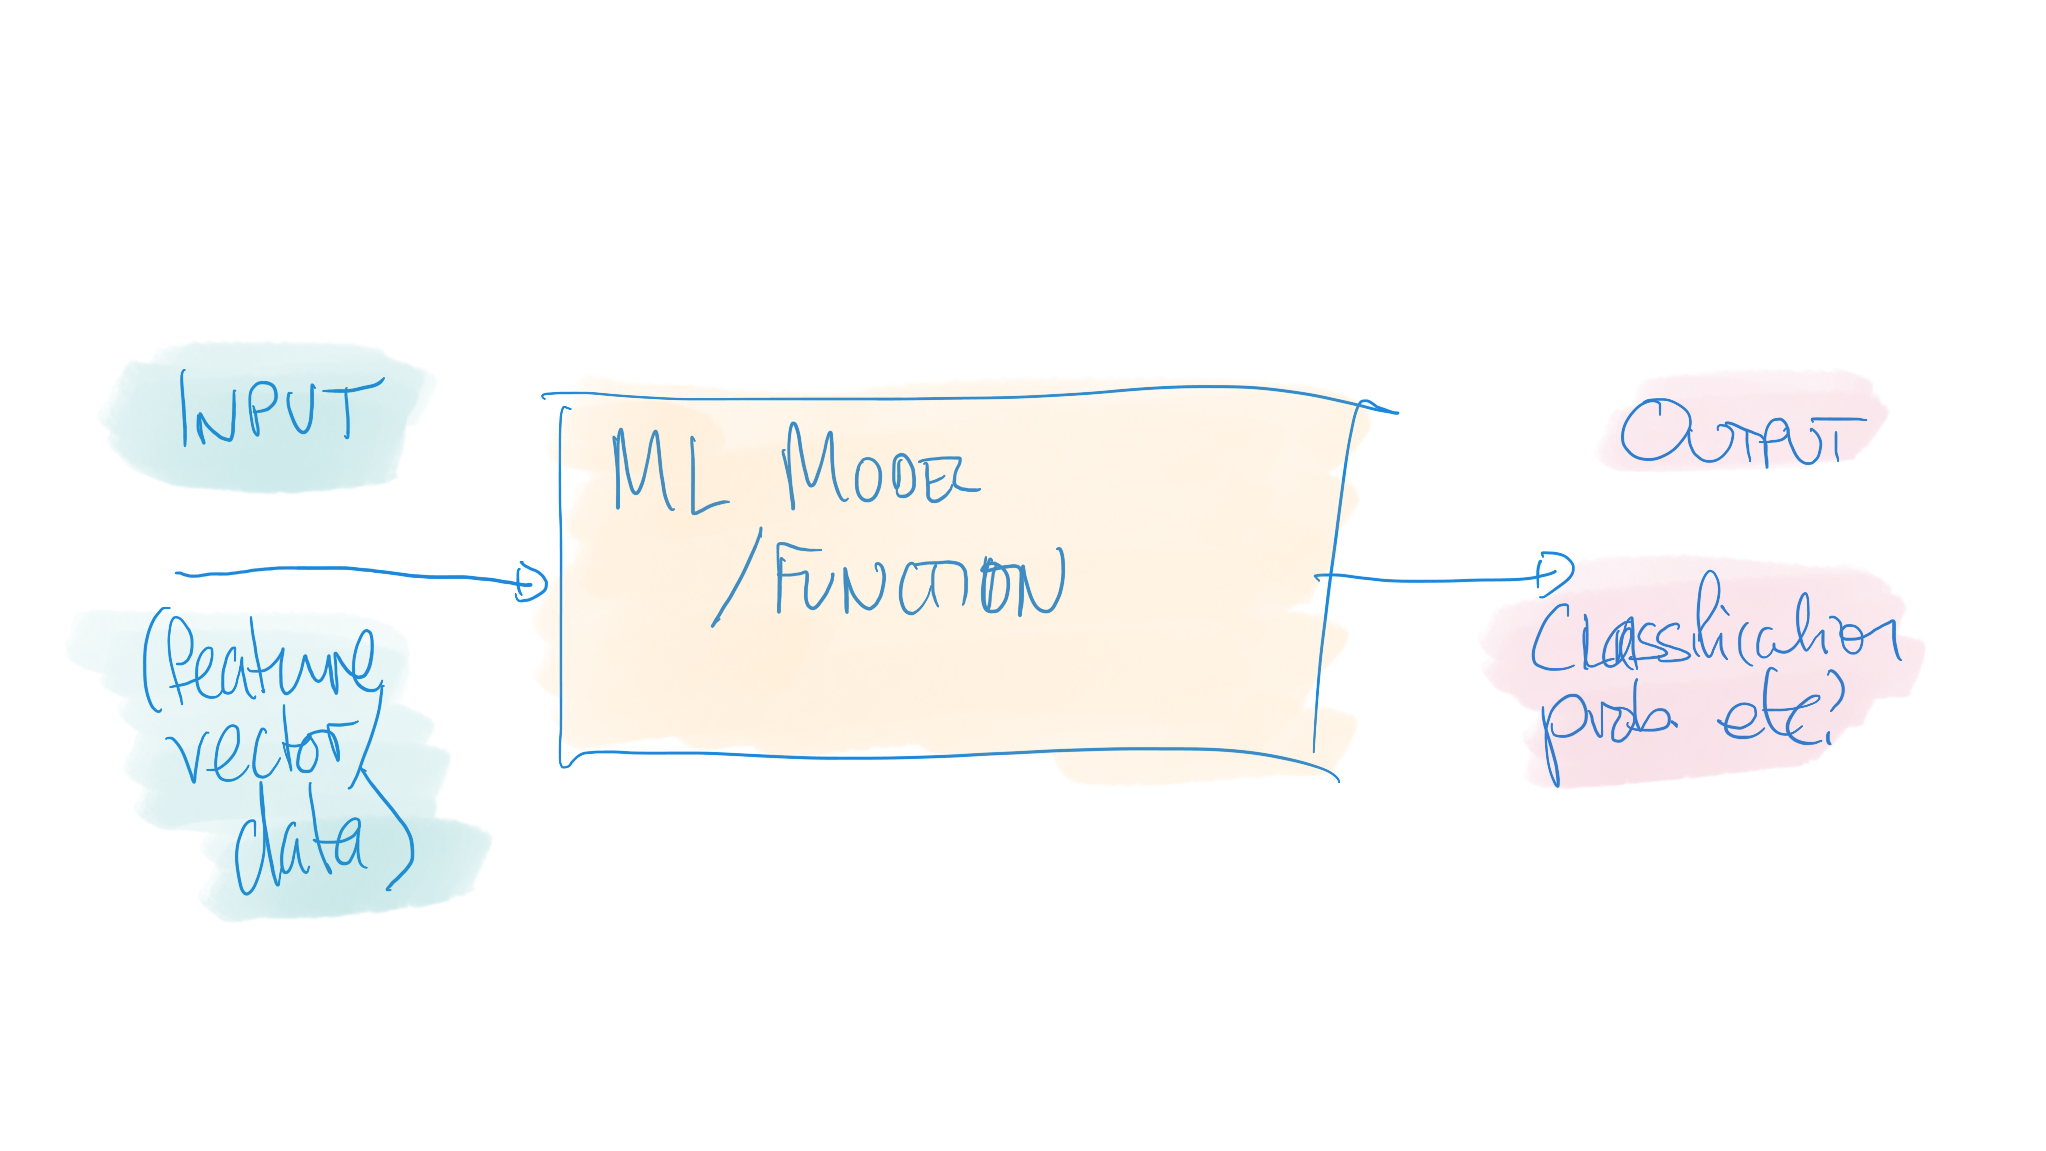 INPUT
(feature
vector/
data)
ML MODEL
/FUNCTION
OUTPUT
Classification
prob etc?